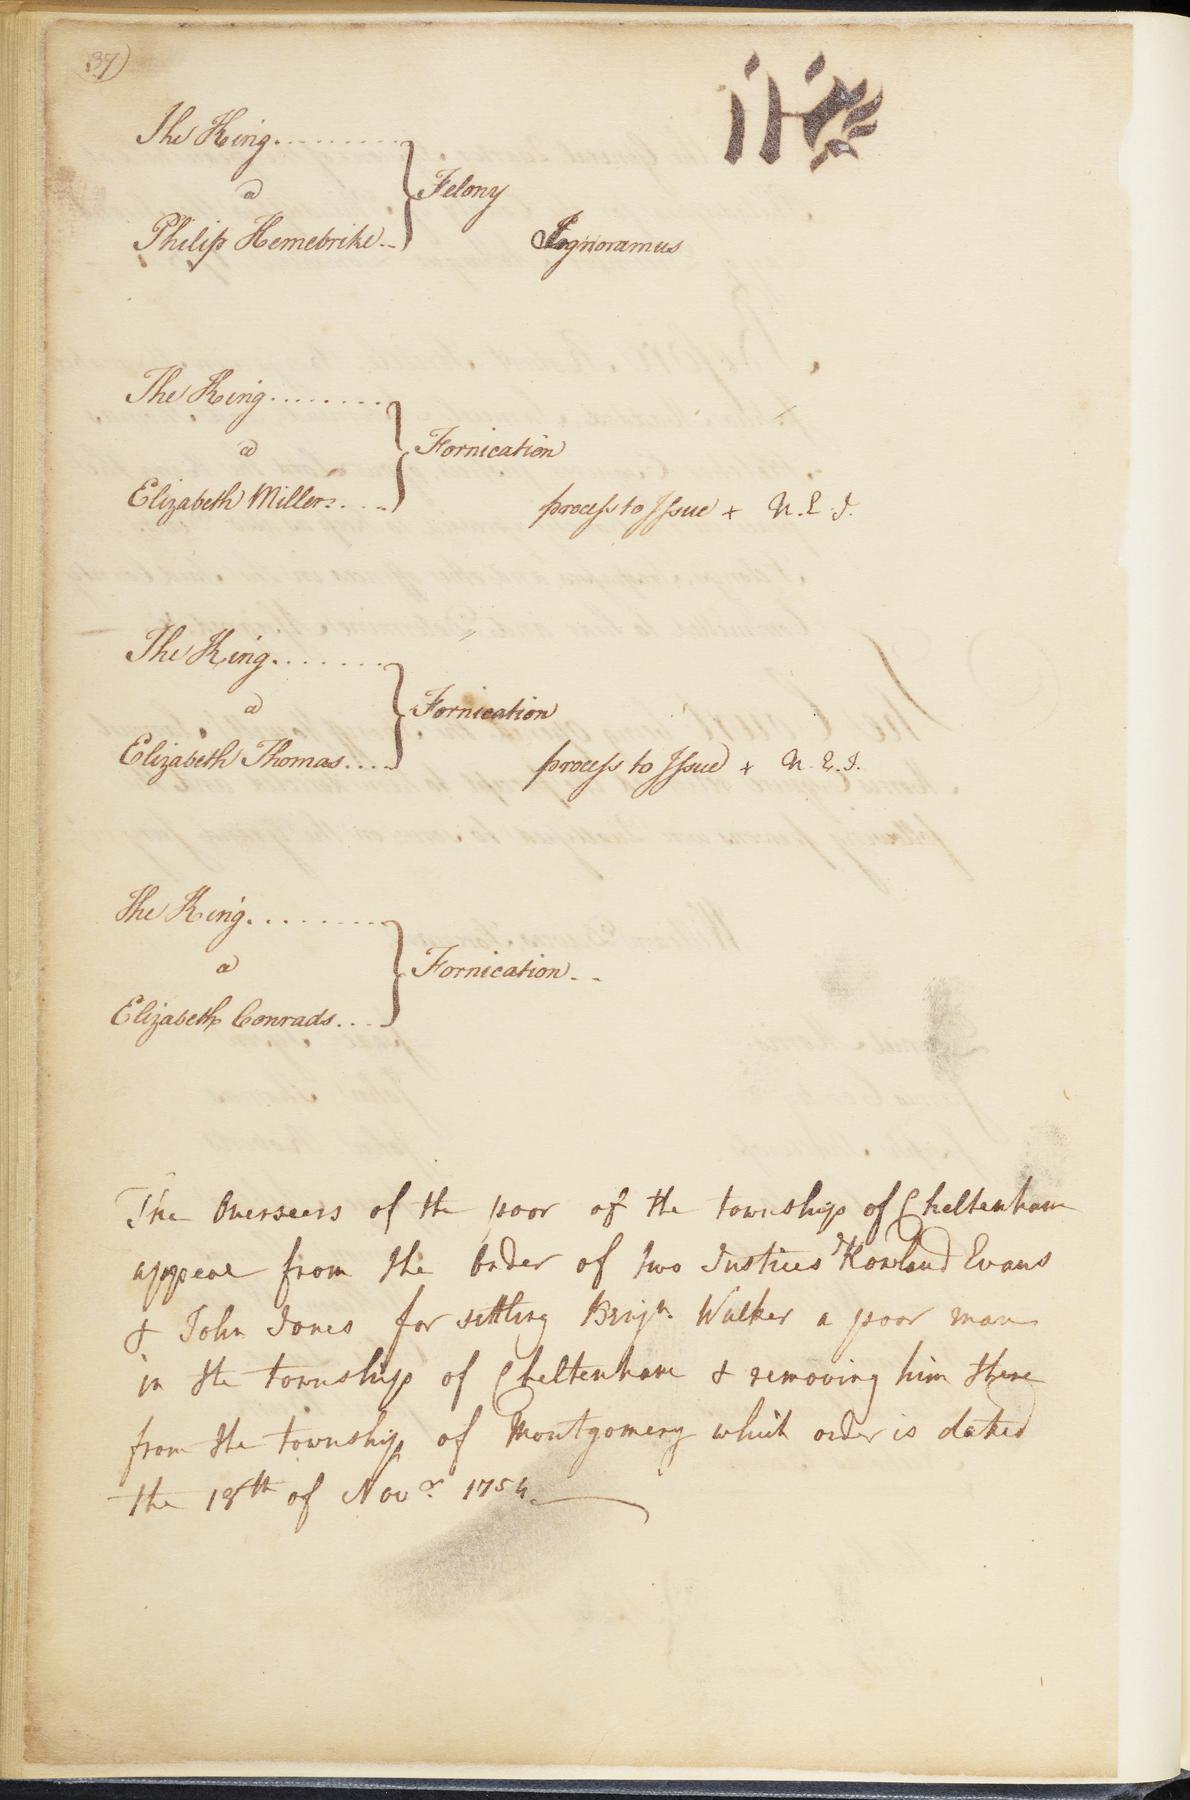 37
The King.........
a } Felony
Philip Hemebrike... Ignoramus
The King.........
a } Fornication
Elizabeth Miller.... process to Issue + N. E. I.
The King.......
a } Fornication
Elizabeth Thomas.... process to Issue + N. E. I.
The King.........
a } Fornication..
Elizabeth Conrads....
The Overseers of the poor of the township of Cheltenham
appeal from the order of two Justices Rowland Evans
& John Jones for settling Benjn. Walker a poor man
in the township of Cheltenham & removing him there
from the township of Montgomery which order is dated
the 18th of Novr. 1754